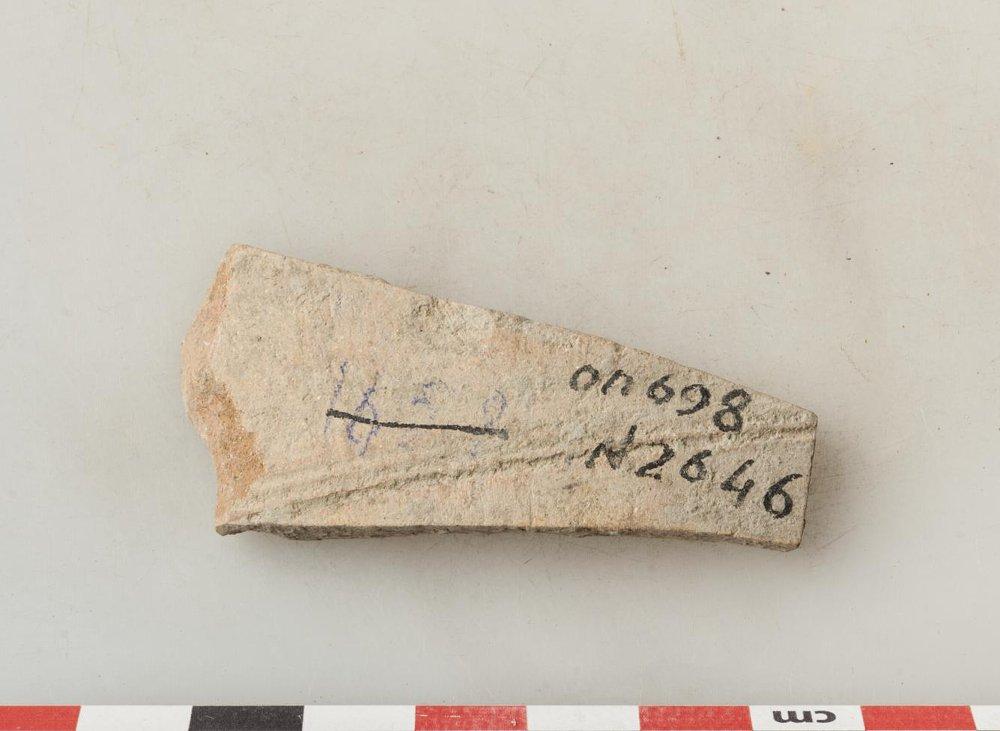 on698
N2646
cm